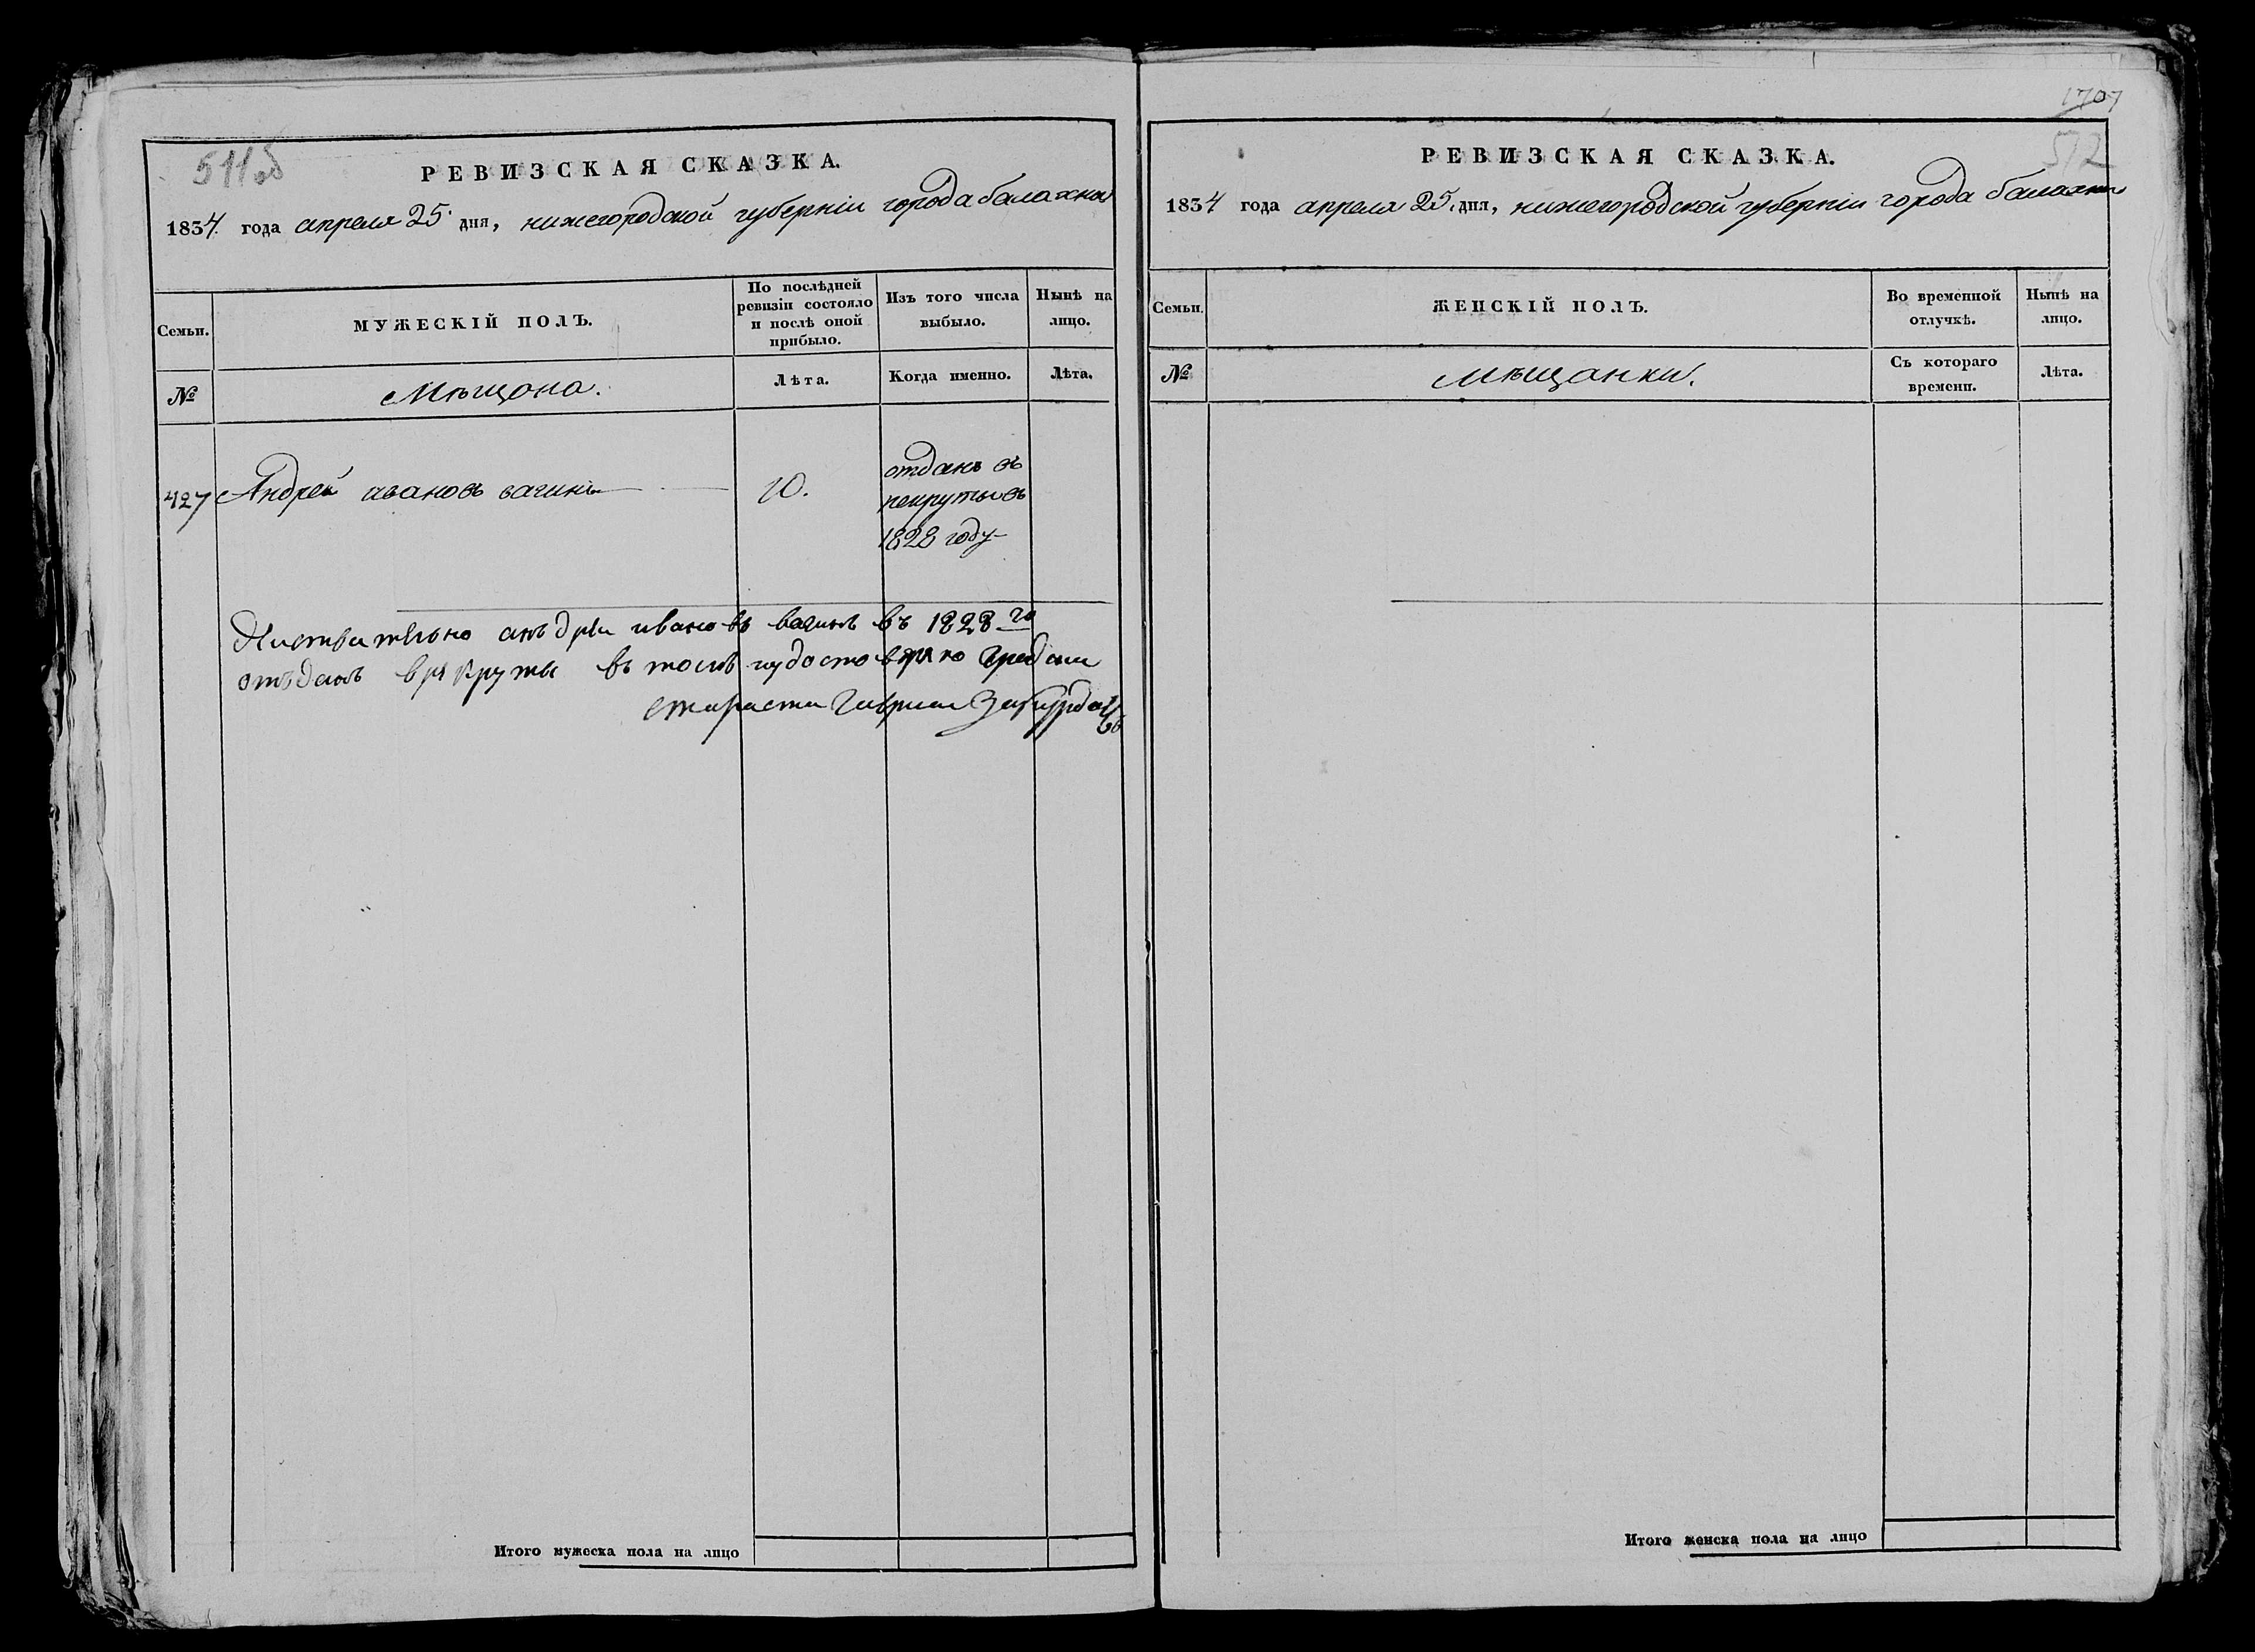 511об
РЕВИЗСКАЯ СКАЗКА.
1834 года апреля 25 дня, нижегородской губерніи города балахны
Семьи.
МУЖЕСКІЙ ПОЛЪ.
По послѣдней ревизіи состояло и послѣ оной прибыло.
Изъ того числа выбыло.
Нынѣ на лицо.
№
Мѣщона.
Лѣта.
Когда именно.
Лѣта.
427
Андрей ивановъ вагинъ
отданъ въ
рекруты въ
1828 году
ивановъ вагинъ въ 1828 го
отъданъ въ томъ
староста
Итого мужеска пола на лицо
1707
512
РЕВИЗСКАЯ СКАЗКА.
1834 года апреля 25 дня, нижегородской губерніи города балахны
Семьи.
ЖЕНСКІЙ ПОЛЪ.
Во временной отлучкѣ.
Нынѣ на лицо.
№
Мѣщанки.
Съ котораго времени.
Лѣта.
Итого женска пола на лицо